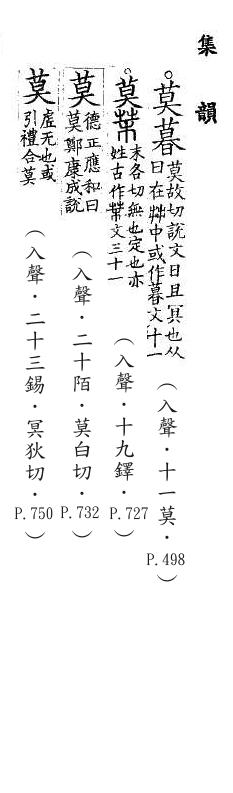 集韻
。莫暮莫故切說文日且冥也从
日在茻中或作暮文十一
（入聲．十一莫．P.498）
。莫末各切無也定也亦
姓古作文三十一
（入聲．十九鐸．P.727）
莫德正應和曰
莫鄭康成說
（入聲．二十陌．莫白切．P.732）
莫虛无也或
引禮合莫
（入聲．二十三錫．冥狄切．P.750）